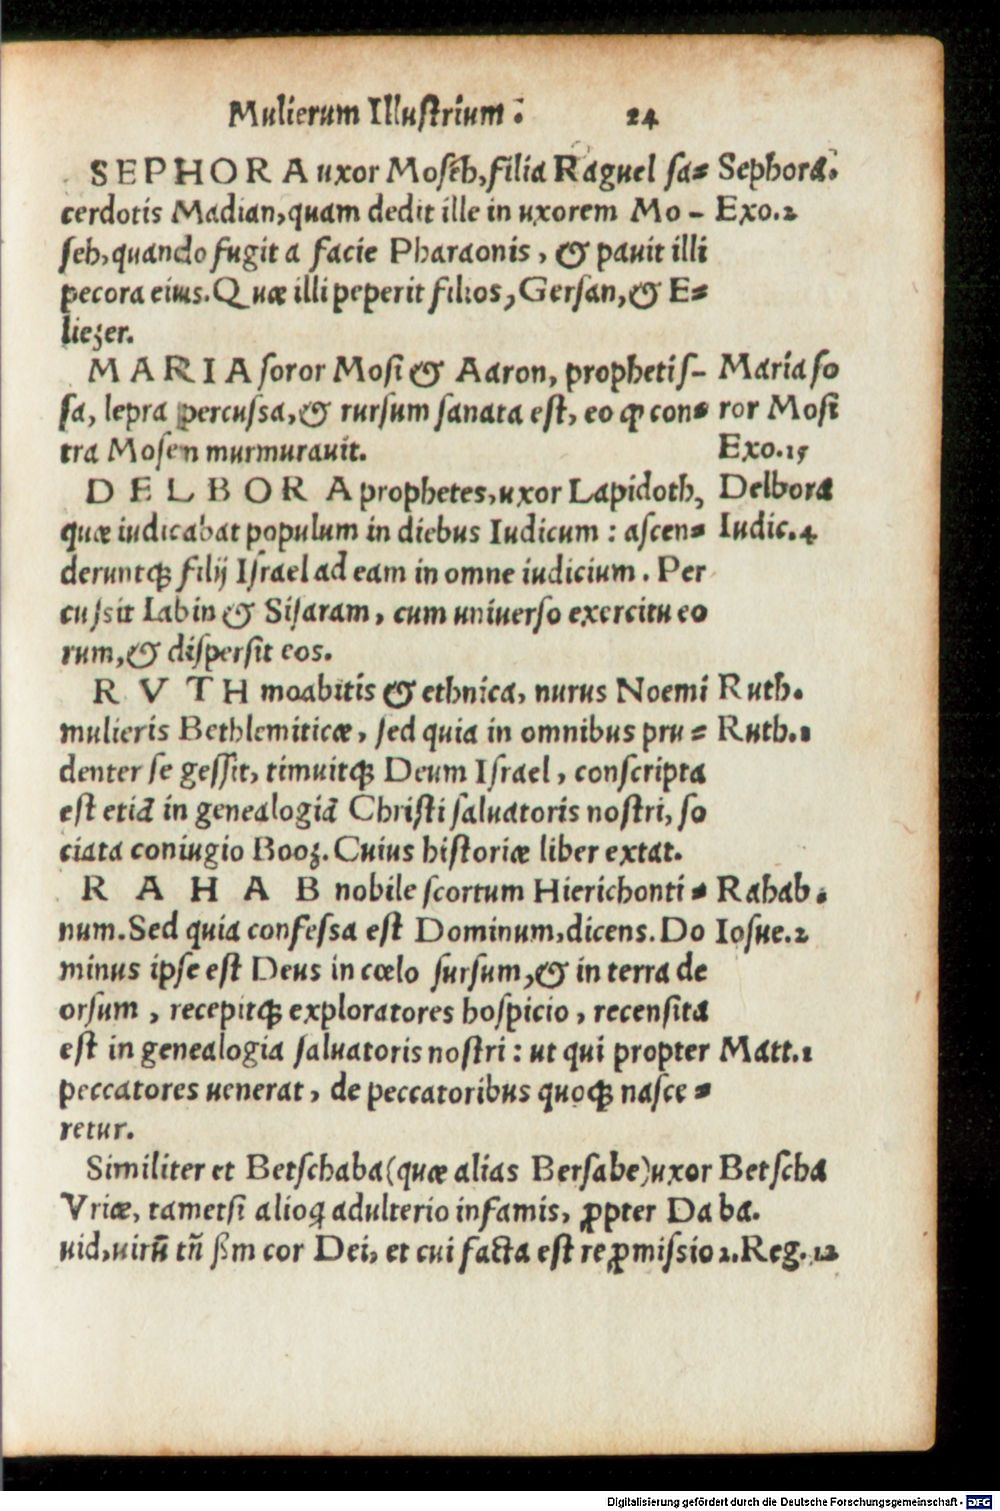 Mulierum Illustrium. 24
SEPHORA uxor Moseh, filia Raguel sa= Sephora.
cerdotis Madian, quam dedit ille in uxorem Mo - Exo.2
seh, quando fugit a facie Pharaonis, & pauit illi
pecora eius. Quæ illi peperit filios, Gersan, & E=
liezer.
MARIA soror Mosi & Aaron, prophetis- Maria so
sa, lepra percussa, & rursum sanata est, eo ꝙ con= ror Mosi
tra Mosen murmurauit. Exo.15
DELBORA prophetes, uxor Lapidoth, Delbora
quæ iudicabat populum in diebus Iudicum : ascen= Iudic.4
deruntq; filij Israel ad eam in omne iudicium. Per
cussit Iabin & Sisaram, cum uniuerso exercitu eo
rum, & dispersit eos.
RVTH moabitis & ethnica, nurus Noemi Ruth.
mulieris Bethlemiticæ, sed quia in omnibus pru = Ruth.1
denter se gessit, timuitq; Deum Israel, conscripta
est etiā in genealogiā Christi saluatoris nostri, so
ciata coniugio Booz. Cuius historiæ liber extat.
RAHAB nobile scortum Hierichonti = Rahab.
num. Sed quia confessa est Dominum, dicens. Do Iosue.2
minus ipse est Deus in cœlo sursum, & in terra de
orsum, recepitq; exploratores hospicio, recensita
est in genealogia saluatoris nostri : ut qui propter Matt.1
peccatores uenerat, de peccatoribus quoq; nasce =
retur.
Similiter et Betschaba (quæ alias Bersabe) uxor Betscha
Vriæ, tametsi alioq adulterio infamis, ꝓpter Da ba.
uid, uirū tñ ẜm cor Dei, et cui facta est reꝓmissio 2.Reg.12
Digitalisierung gefördert durch die Deutsche Forschungsgemeinschaft - DFG